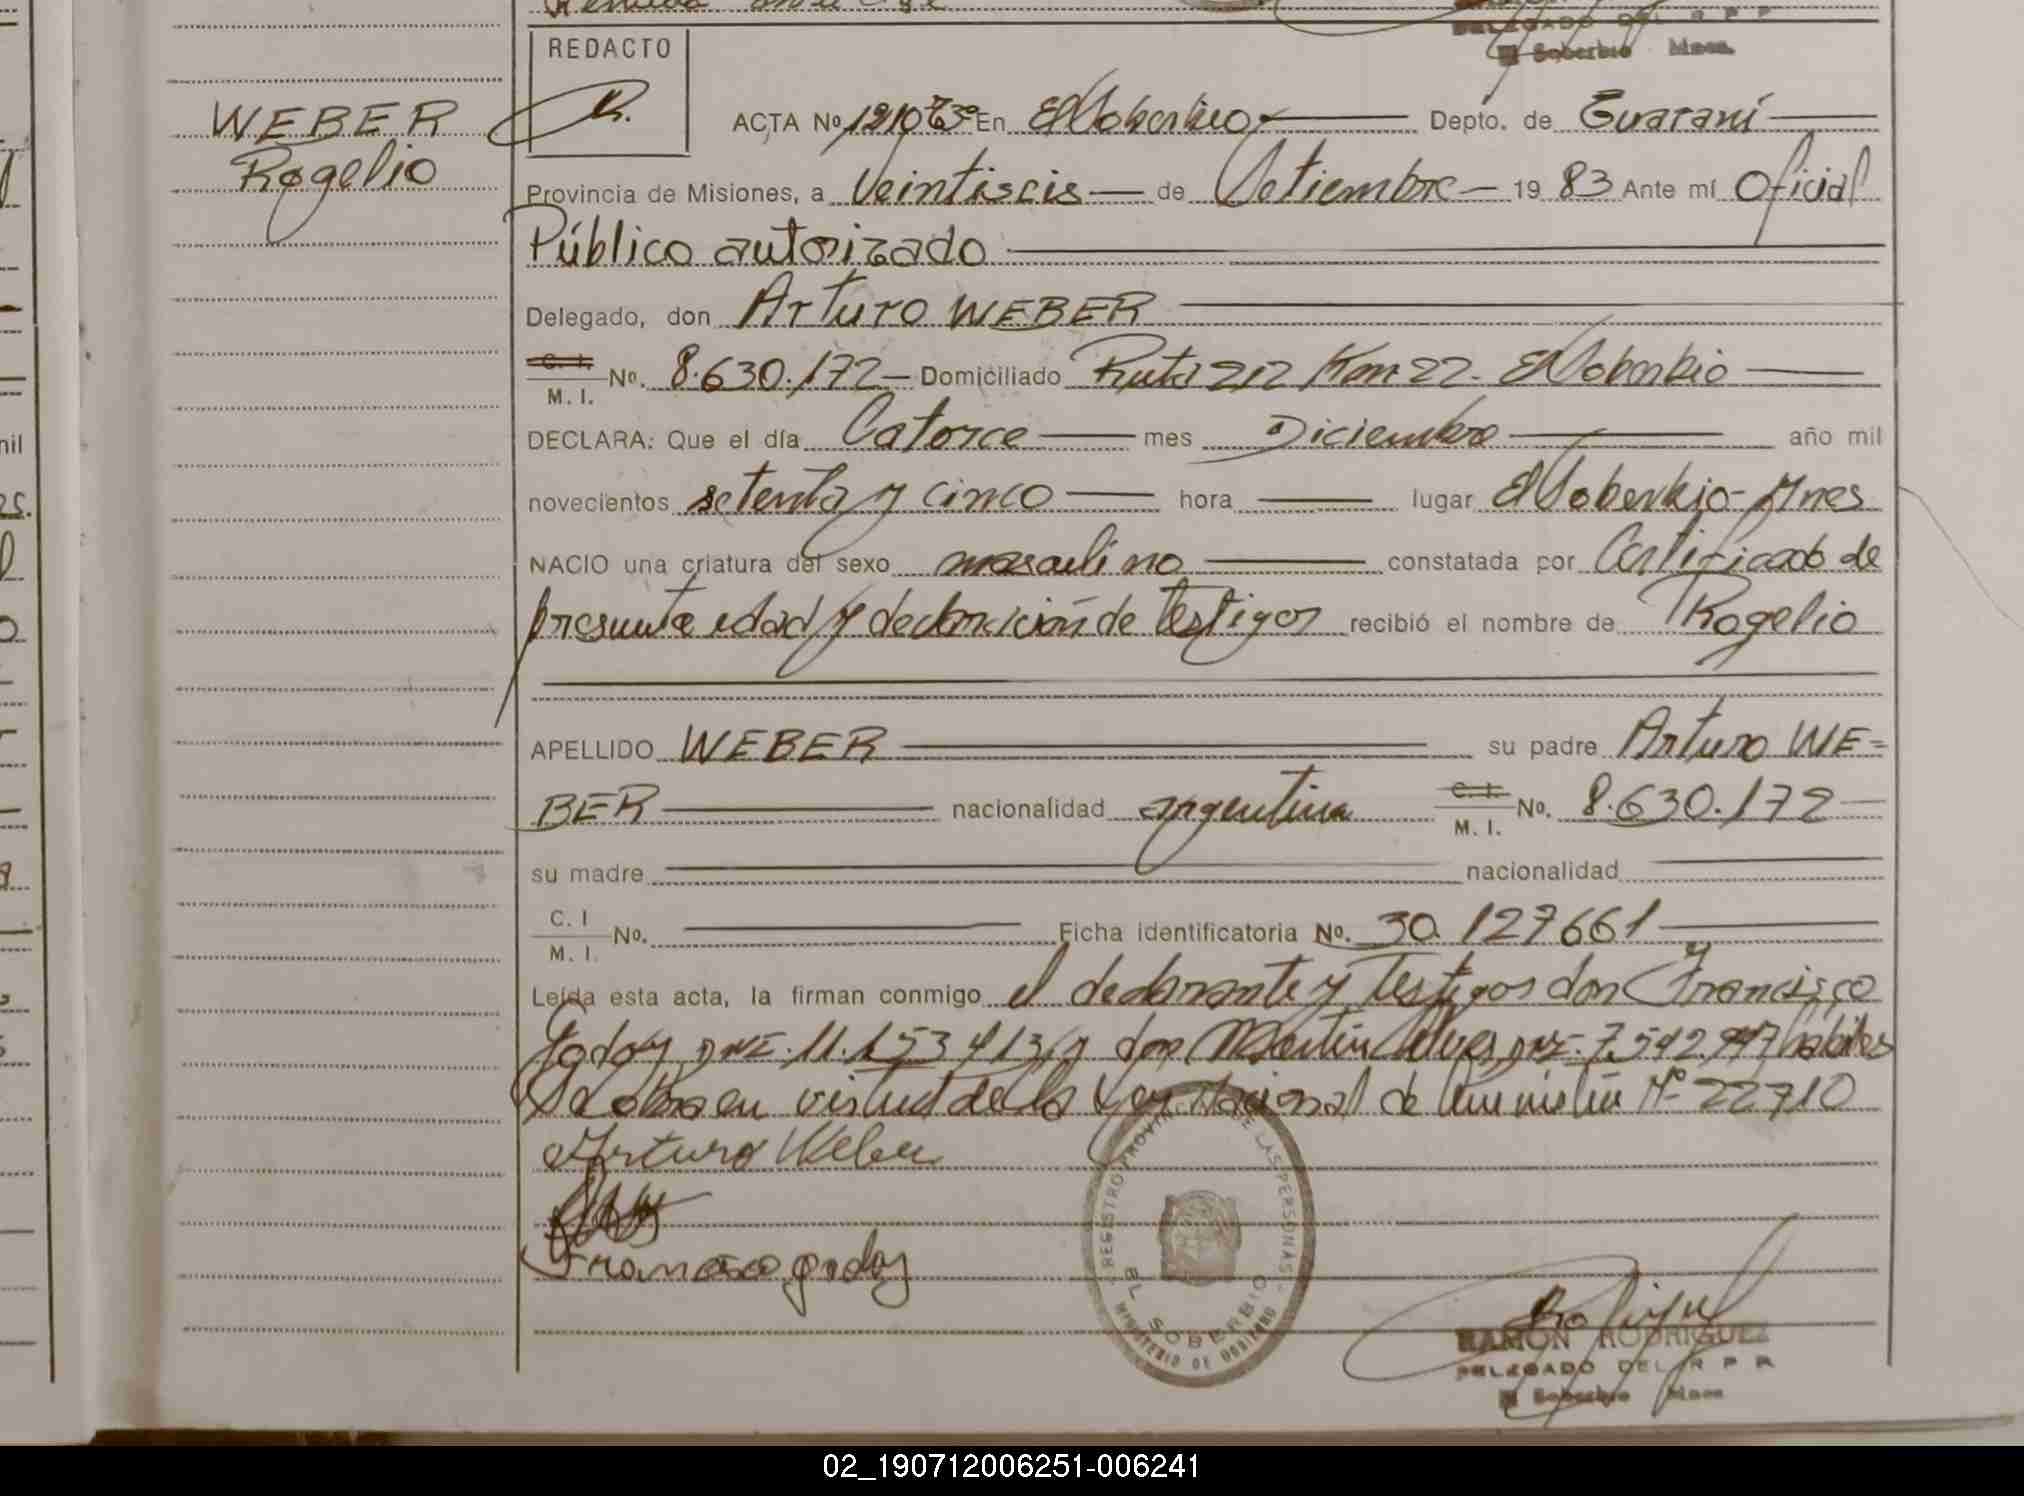 REDACTO
DELEGADO DEL R P P
El Soberbio Mnes.
WEBER
Rogelio
ACTA Nº En El Soberbio Depto. de Guaraní
Provincia de Misiones, a Veintiseis de Setiembre 19 83 Ante mí Oficial
Público autorizado
Delegado, don Arturo WEBER
C. I.
M. I. No. 8.630.172 Domiciliado Ruta 212 Km 22. El Soberbio
DECLARA: Que el día Catorce mes Diciembre año mil
novecientos setenta y cinco hora lugar El Soberbio - Mnes
NACIO una criatura del sexo masculino constatada por Certificado de
presunta edad y declaración de testigos recibió el nombre de Rogelio
APELLIDO WEBER su padre Arturo WE=
BER nacionalidad argentina C. I. M. I. No. 8.630.172
su madre nacionalidad
C. I
M. I. No. Ficha identificatoria No. 30.127661
Leída esta acta, la firman conmigo el declarante y testigos don Francisco
Godoy DNI. 11.153.413 y don Martin Alves DNI. 7.542.947 hábiles
Se labra en virtud de la Ley Nacional de Amnistía Nº 22710
Arturo Weber
Francisco godoy
REGISTRO PROVINCIAL DE LAS PERSONAS
EL SOBERBIO
MINISTERIO DE GOBIERNO
RAMON RODRIGUEZ
DELEGADO DEL R P P
El Soberbio Mnes
02_190712006251-006241